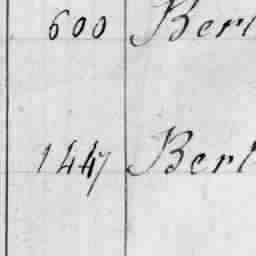 600 Berl
1447 Berl